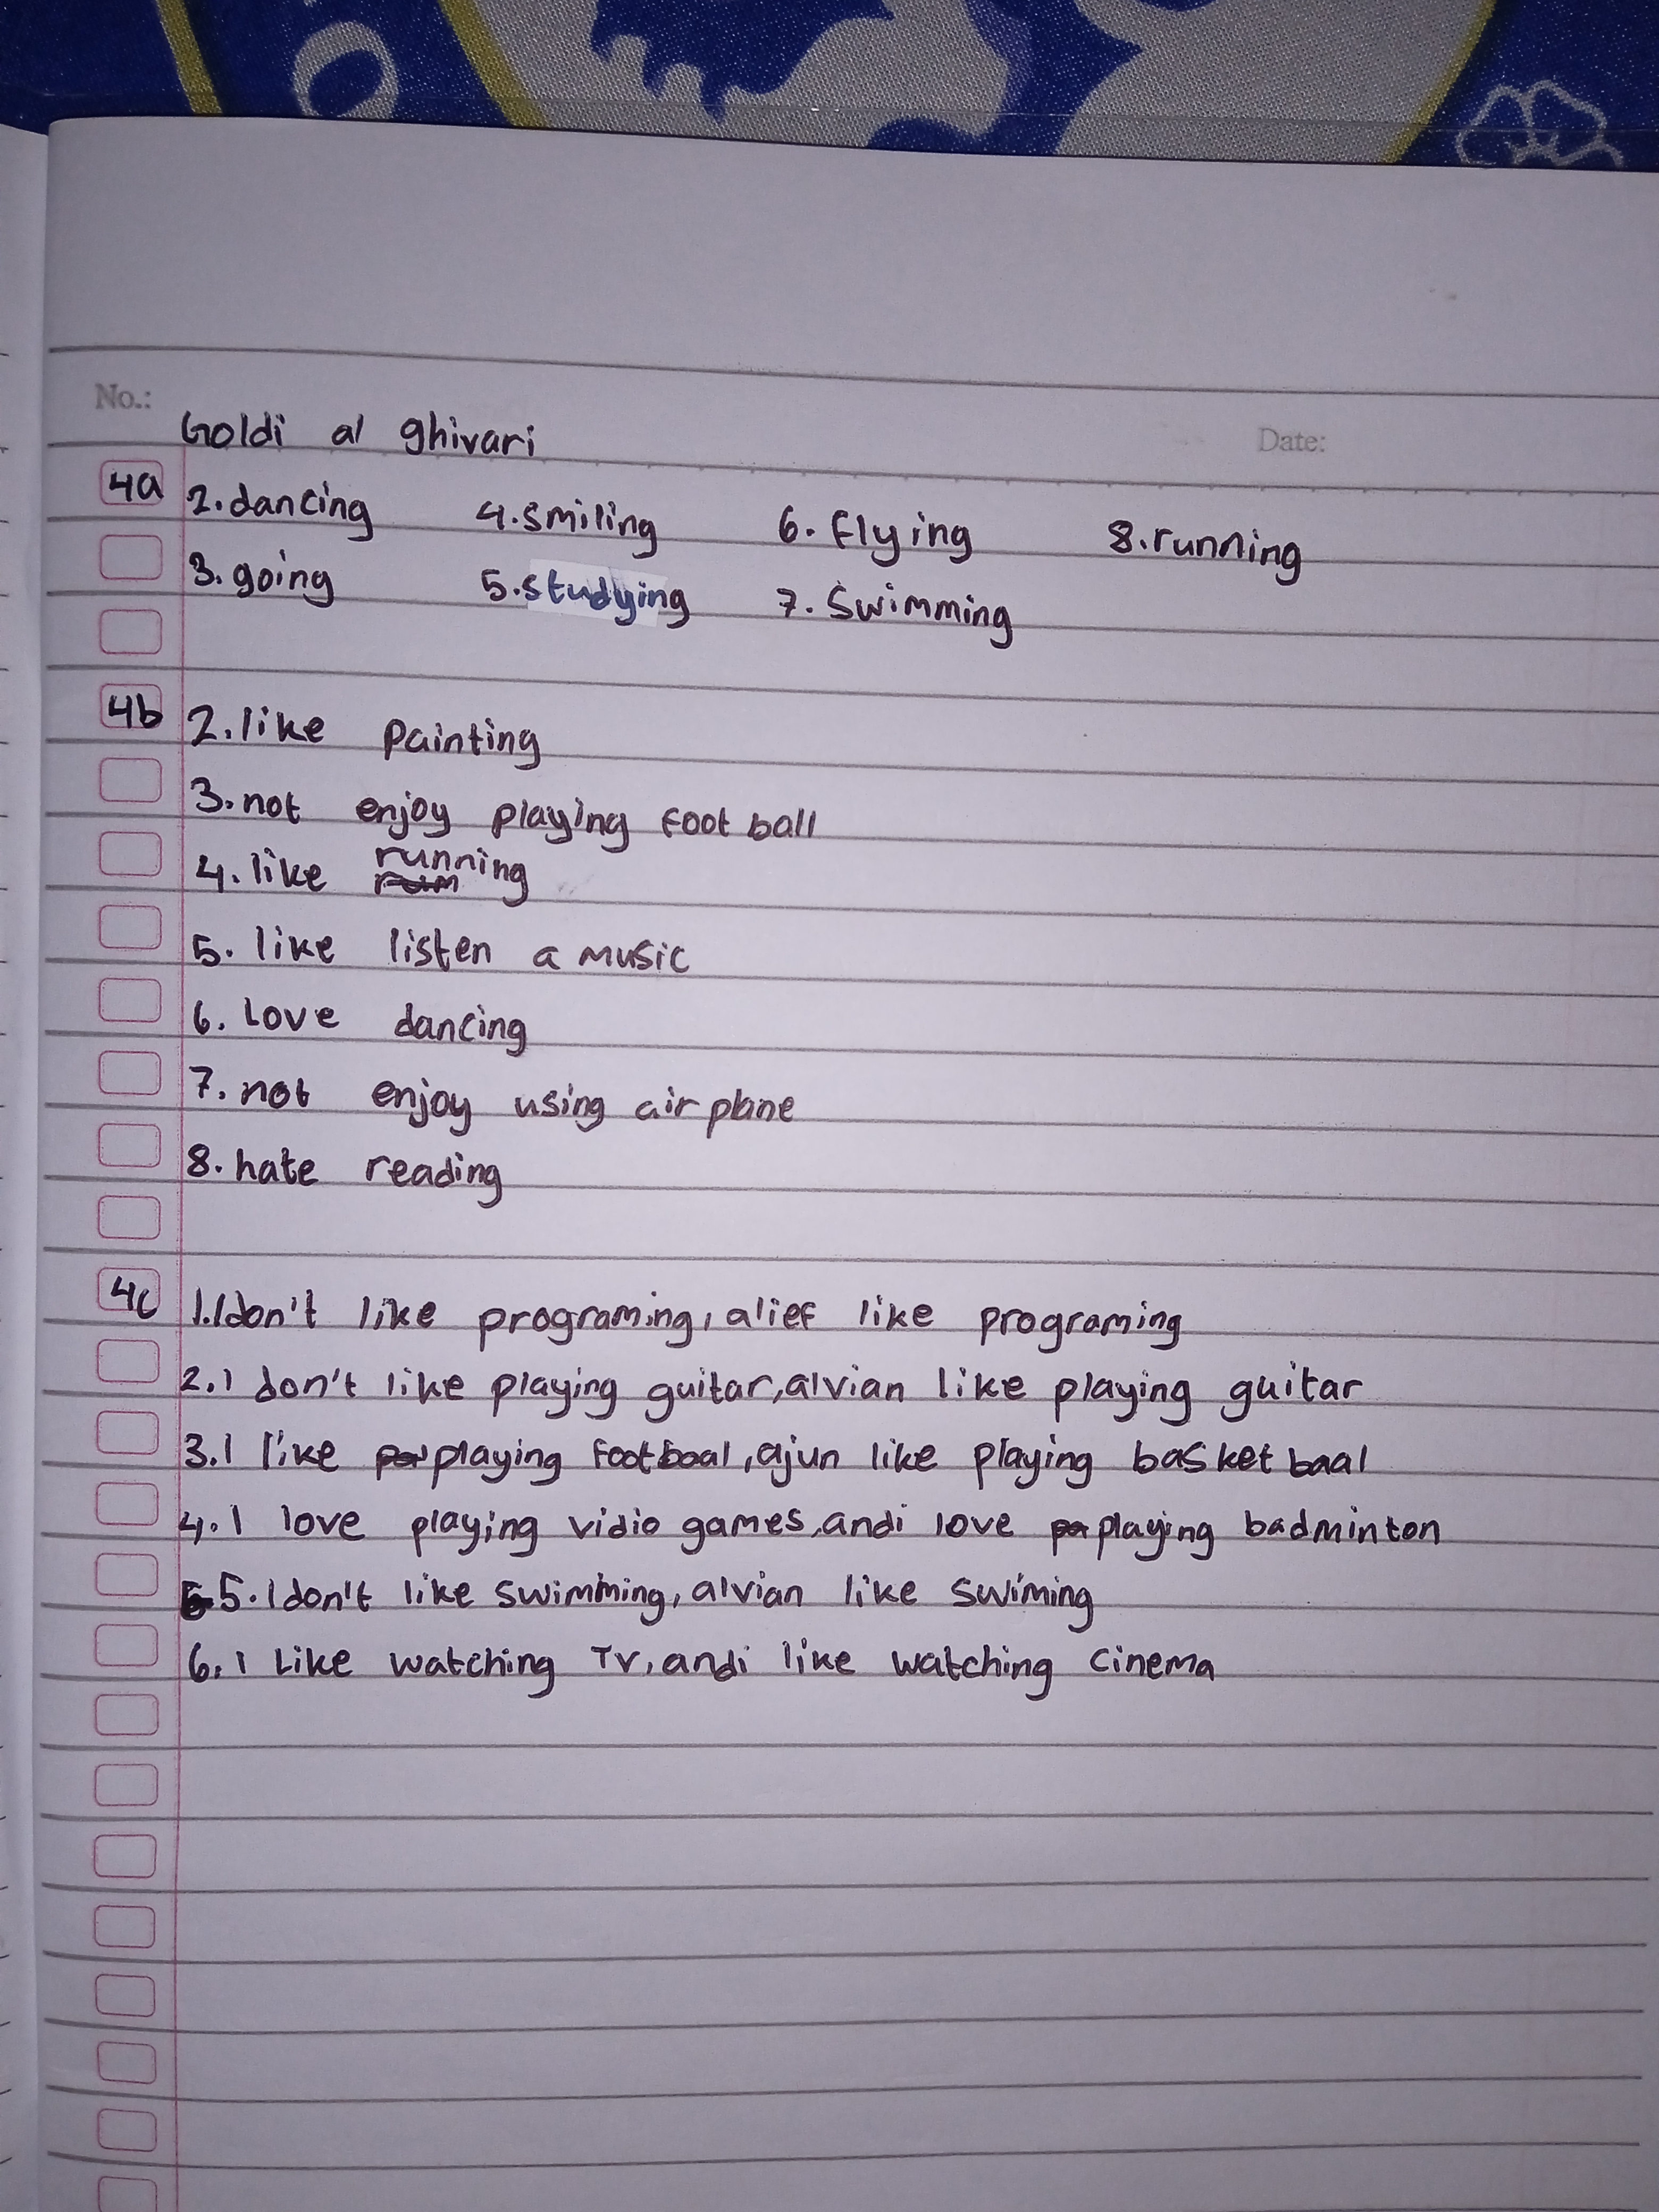 No.:
Goldi al ghivari
Date:
4a 2.dancing 4.smiling 6. flying 8.running
3. going 5.studying 7. Swimming
4b 2.like painting
3.not enjoy playing foot ball
4. like running
5. like listen a music
6. Love dancing
7. not enjoy using air plane
8. hate reading
4c 1.I don't like programing, alief like programing
2.I don't like playing guitar, alvian like playing guitar
3.I like playing footboal, ajun like playing basket baal
4.I love playing vidio games, andi love playing badminton
5.I don't like swimming, alvian like swiming
6.I Like watching Tv, andi like watching cinema